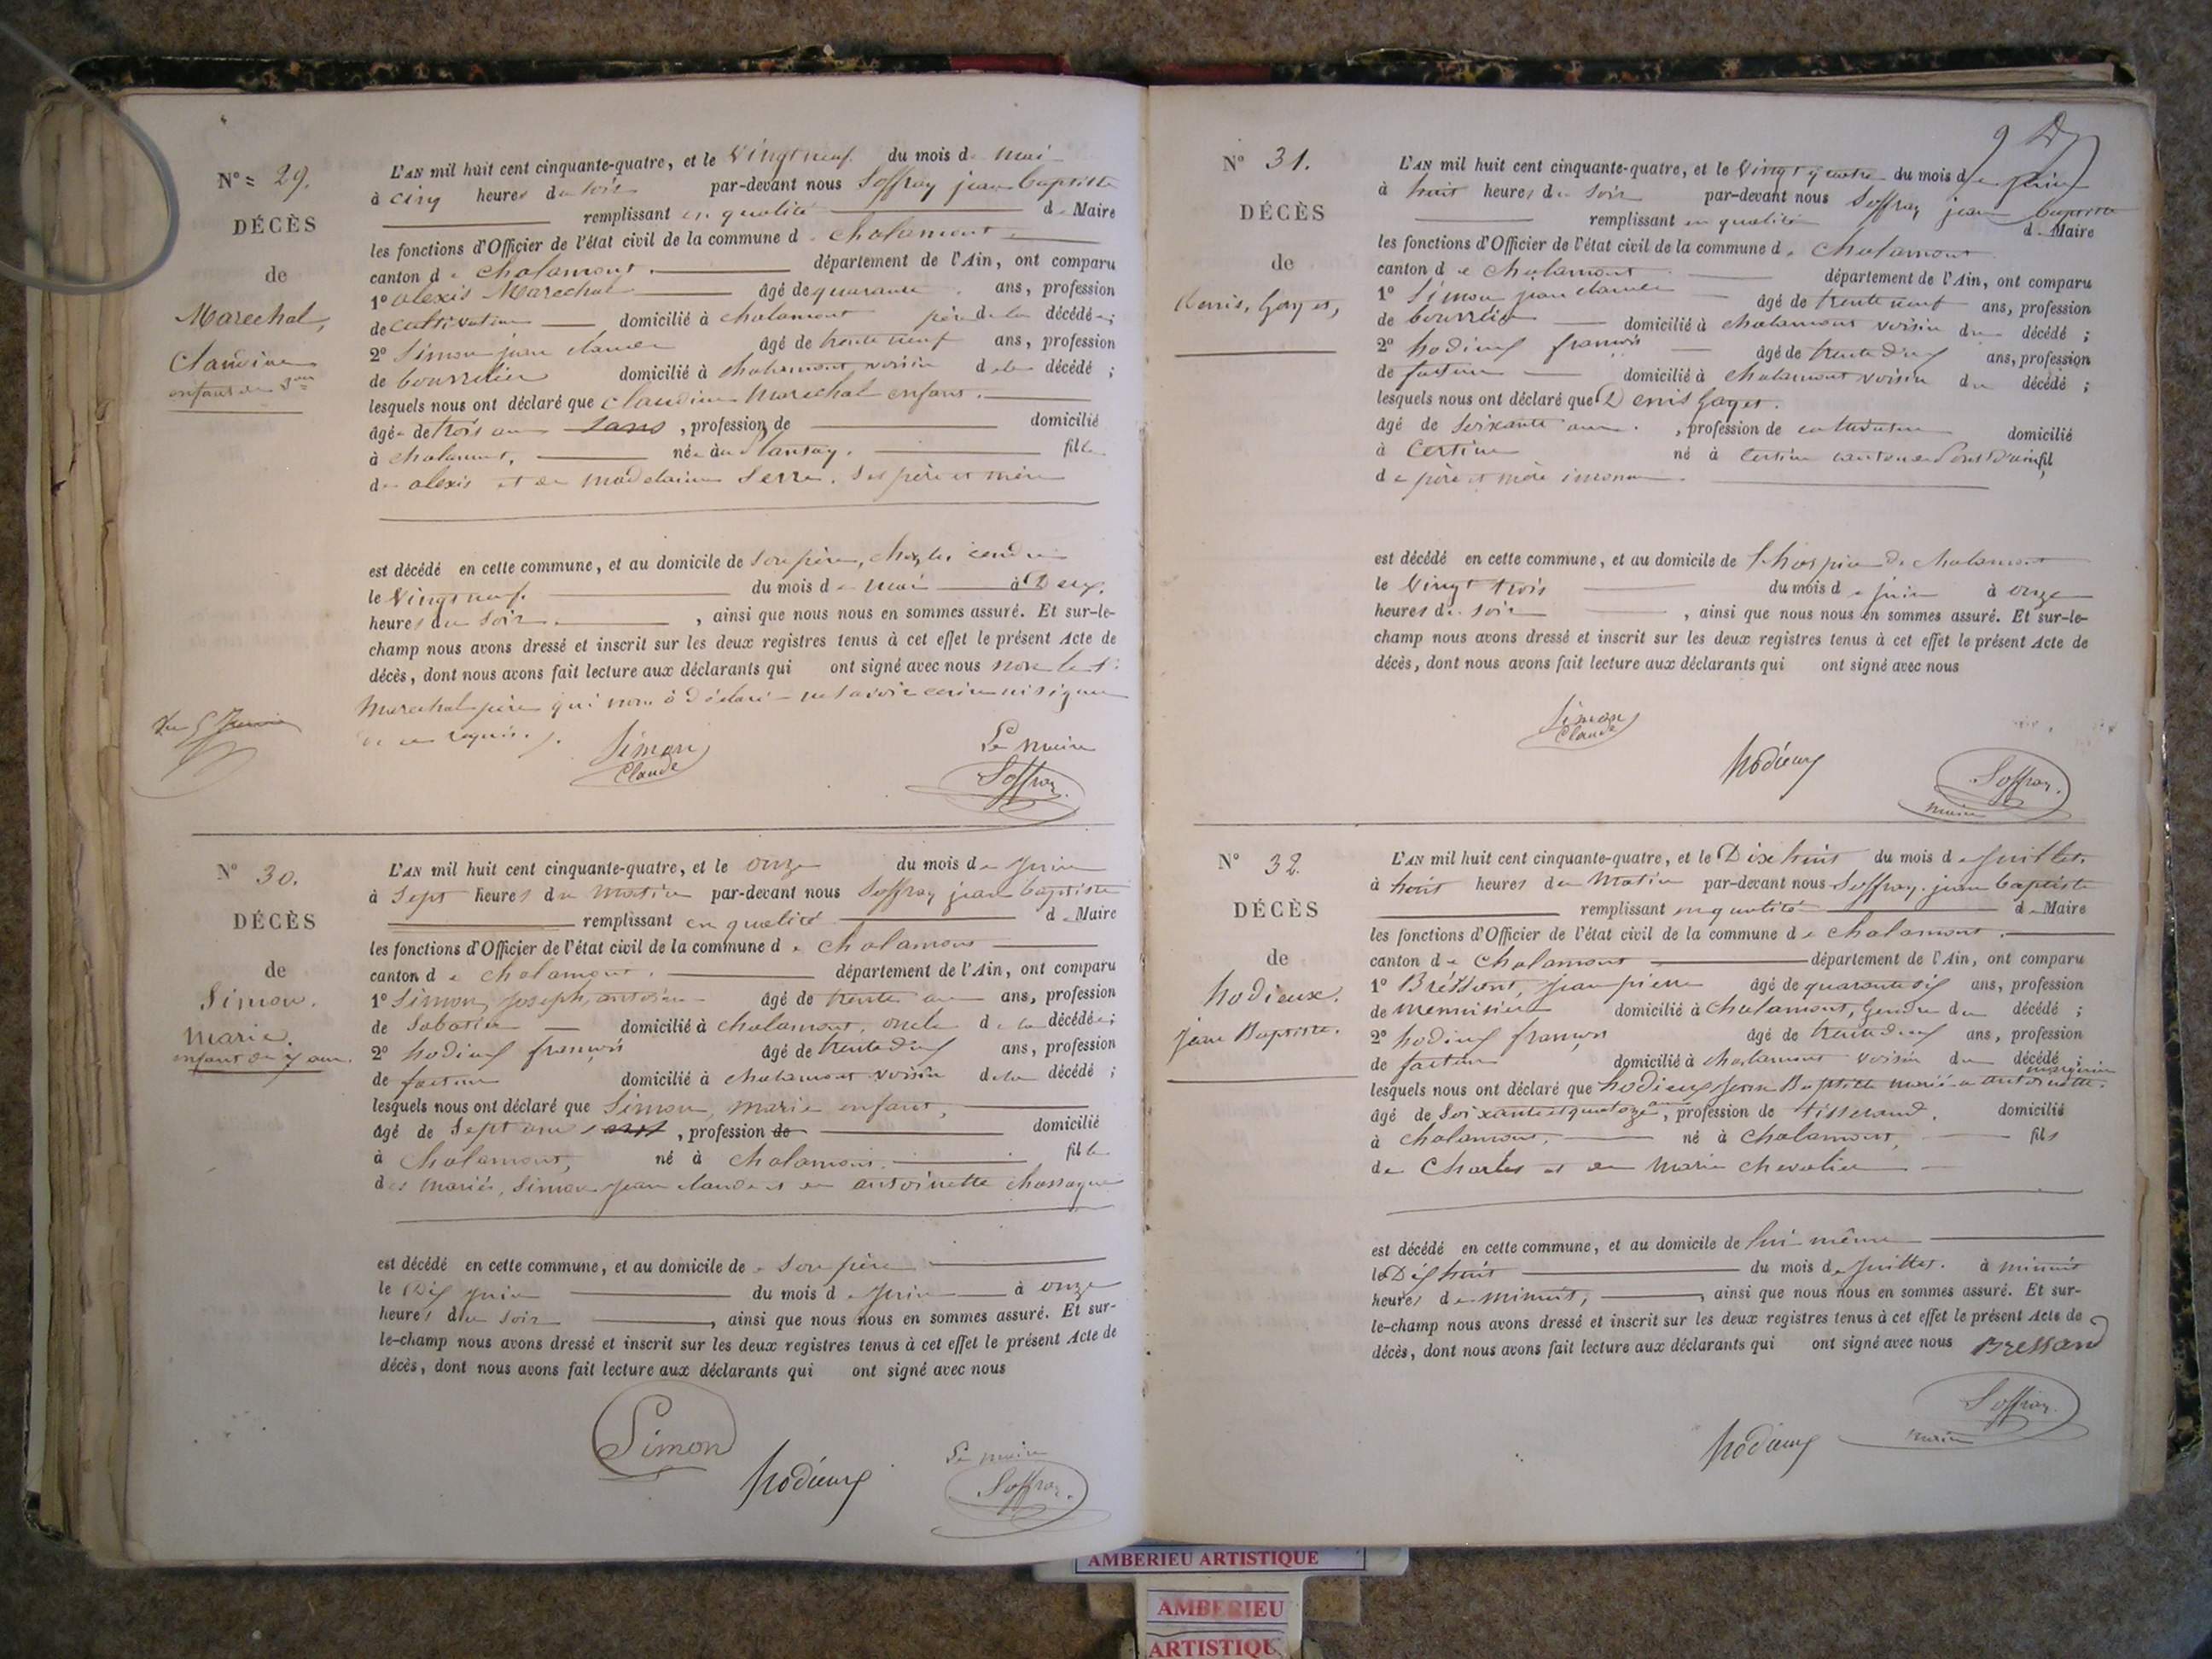 N° 29.
DÉCÈS
de
Marechal,
Claudine
enfant de 3 ans
L'AN mil huit cent cinquante-quatre, et le Vingt neuf du mois de mai
à cinq heures du soir par-devant nous Soffray jean baptiste
remplissant en qualité de Maire
les fonctions d'Officier de l'état civil de la commune de Chalamont
canton de Chalamont. département de l'Ain, ont comparu
1° alexis Marechal âgé de quarante ans, profession
de cultivateur domicilié à chalamont père de la décédée;
2° Simon jean claude âgé de trente neuf ans, profession
de bourrelier domicilié à chalamont voisin de la décédé;
lesquels nous ont déclaré que claudine Marechal enfant.
âgée de trois ans, profession de domicilié
à chalamont, née au fille
de alexis et de madelaine Serre. Ses père et mère
est décédé en cette commune, et au domicile de son père,
le Vingt neuf du mois de mai à Deux
heures du Soir, ainsi que nous nous en sommes assuré. Et sur-le-
champ nous avons dressé et inscrit sur les deux registres tenus à cet effet le présent Acte de
décès, dont nous avons fait lecture aux déclarants qui ont signé avec nous non le d.
Marechal père qui nous à déclaré ne savoir écrire ni signer
de ce requis.
Simon Le maire
Claude Soffray
N° 30.
DÉCÈS
de
Simon.
Marie.
enfant de 7 ans.
L'AN mil huit cent cinquante-quatre, et le onze du mois de Juin
à Sept heures du Matin par-devant nous Soffray jean baptiste
remplissant en qualité de Maire
les fonctions d'Officier de l'état civil de la commune de Chalamont
canton de Chalamont. département de l'Ain, ont comparu
1° Simon, Joseph, antoine âgé de trente ans, profession
de Sabotier domicilié à chalamont, oncle de la décédée;
2° hodieux françois âgé de trente deux ans, profession
de facteur domicilié à chalamont voisin de la décédé;
lesquels nous ont déclaré que Simon, Marie enfant,
âgé de Sept ans, profession de domicilié
à Chalamont, né à chalamont. fille
des mariés, Simon Jean claude et de antoinette chassagne
est décédé en cette commune, et au domicile de Son père
le Dix juin du mois de Juin à onze
heures du Soir, ainsi que nous nous en sommes assuré. Et sur-
le-champ nous avons dressé et inscrit sur les deux registres tenus à cet effet le présent Acte de
décès, dont nous avons fait lecture aux déclarants qui ont signé avec nous
Simon
hodieux
Le maire
Soffray
N° 31.
DÉCÈS
de
Denis, Goyet,
L'AN mil huit cent cinquante-quatre, et le Vingt quatre du mois de juin
à huit heures du Soir par-devant nous Soffray jean baptiste
remplissant en qualité de Maire
les fonctions d'Officier de l'état civil de la commune de Chalamont
canton de Chalamont département de l'Ain, ont comparu
1° Simon jean claude âgé de trente neuf ans, profession
de bourrelier domicilié à chalamont voisin du décédé;
2° hodieux françois âgé de trente deux ans, profession
de facteur domicilié à chalamont voisin du décédé;
lesquels nous ont déclaré que Denis Goyet.
âgé de Soixante ans, profession de cultivateur domicilié
à Certine né à Certine canton de Pont d'ain fil
de père et mère inconnu
est décédé en cette commune, et au domicile de l'hospice de Chalamont
le Vingt trois du mois de juin à onze
heures du Soir, ainsi que nous nous en sommes assuré. Et sur-le-
champ nous avons dressé et inscrit sur les deux registres tenus à cet effet le présent Acte de
décès, dont nous avons fait lecture aux déclarants qui ont signé avec nous
Simon
Claude
hodieux
Soffray
maire
N° 32.
DÉCÈS
de
hodieux.
jean Baptiste.
L'AN mil huit cent cinquante-quatre, et le Dix huit du mois de Juillet.
à huit heures du Matin par-devant nous Soffray. jean baptiste
remplissant en qualité de Maire
les fonctions d'Officier de l'état civil de la commune de Chalamont.
canton de Chalamont département de l'Ain, ont comparu
1° Jean pierre âgé de quarante six ans, profession
de Menuisier domicilié à Chalamont, Gendre du décédé;
2° hodieux françois âgé de trente deux ans, profession
de facteur domicilié à chalamont voisin du décédé
lesquels nous ont déclaré que hodieux Jean Baptiste marié a antoinette
âgé de Soixante et quatorze ans, profession de tisserand. domicilié
à Chalamont, né à Chalamont, fils
de Charles et de Marie chevalier
est décédé en cette commune, et au domicile de lui même
le Dix huit du mois de Juillet. à minuit
heures de minuit, ainsi que nous nous en sommes assuré. Et sur-
le-champ nous avons dressé et inscrit sur les deux registres tenus à cet effet le présent Acte de
décès, dont nous avons fait lecture aux déclarants qui ont signé avec nous Bressand
Soffray
hodieux maire
AMBERIEU ARTISTIQUE
AMBERIEU
ARTISTIQUE